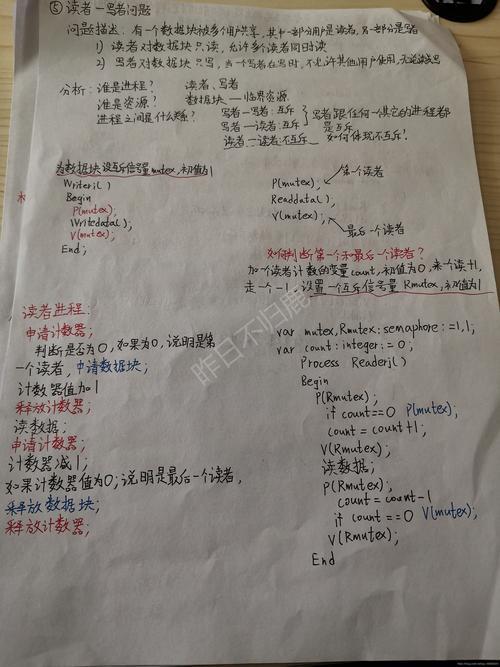 ⑤ 读者—写者问题
问题描述：有一个数据块被多个用户共享，其中一部分用户是读者，另一部分是写者
1) 读者对数据块只读，允许多个读者同时读
2) 写者对数据块只写，当一个写者在写时，不允许其他用户使用，无论读或写
分析：谁是进程？ 读者、写者
谁是资源？ 数据块——临界资源
进程之间是什么关系？ 写者—写者：互斥
写者—读者：互斥
读者—读者：不互斥
写者跟任何一个其它的进程都是互斥
如何体现不互斥！
为数据块设互斥信号量mutex,初值为1
Writeri()
Begin
P(mutex);
Writedata();
V(mutex);
End;
第一个读者
P(mutex);
Readdata();
V(mutex);
最后一个读者
如何判断第一个和最后一个读者？
加个读者计数的变量count,初值为0,来个读+1,
走一个-1,设置一个互斥信号量Rmutex,初值为1
读者进程:
申请计数器;
判断是否为0,如果为0,说明是第
一个读者,申请数据块;
计数器值加1
释放计数器;
读数据;
申请计数器;
计数器减1;
如果计数器值为0;说明是最后一个读者,
释放数据块;
释放计数器;
var mutex,Rmutex:semaphore:=1,1;
var count:integer:=0;
Process Readerj()
Begin
P(Rmutex);
if count==0 P(mutex);
count=count+1;
V(Rmutex);
读数据;
P(Rmutex);
count=count-1
if count==0 V(mutex);
V(Rmutex);
End
昨日不归鹿